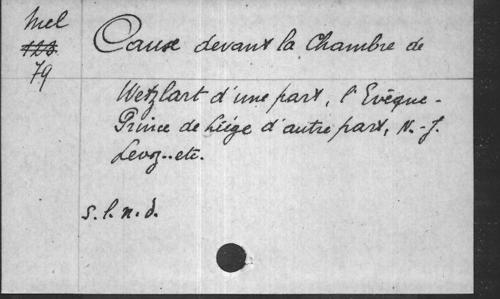 Mel
123
79
Cause devant la Chambre de
Wetzlart d'une part, l'Evêque-
Prince de Liége d'autre part, N.-J.
Levoz..etc.
s.l.n.d.